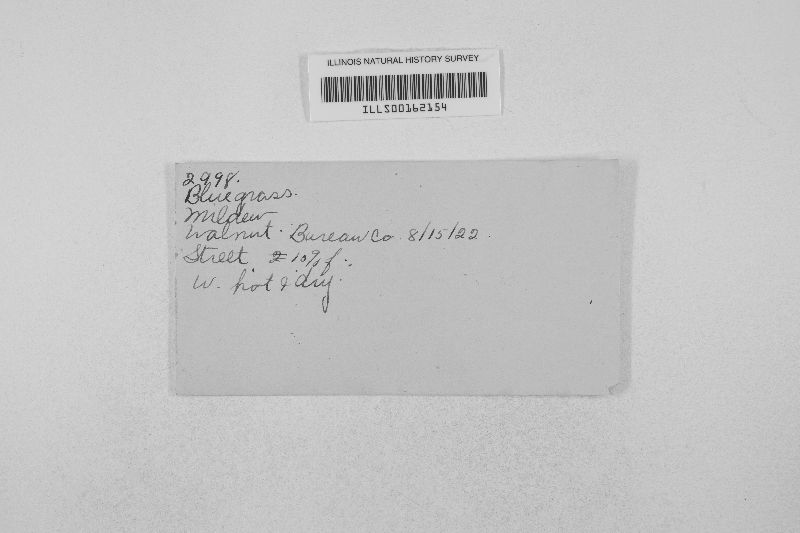 ILLINOIS NATURAL HISTORY SURVEY
ILLS00162154
2998.
Bluegrass.
Mildew
Walnut. Bureau Co. 8/15/22.
Street
W. hot & dry.